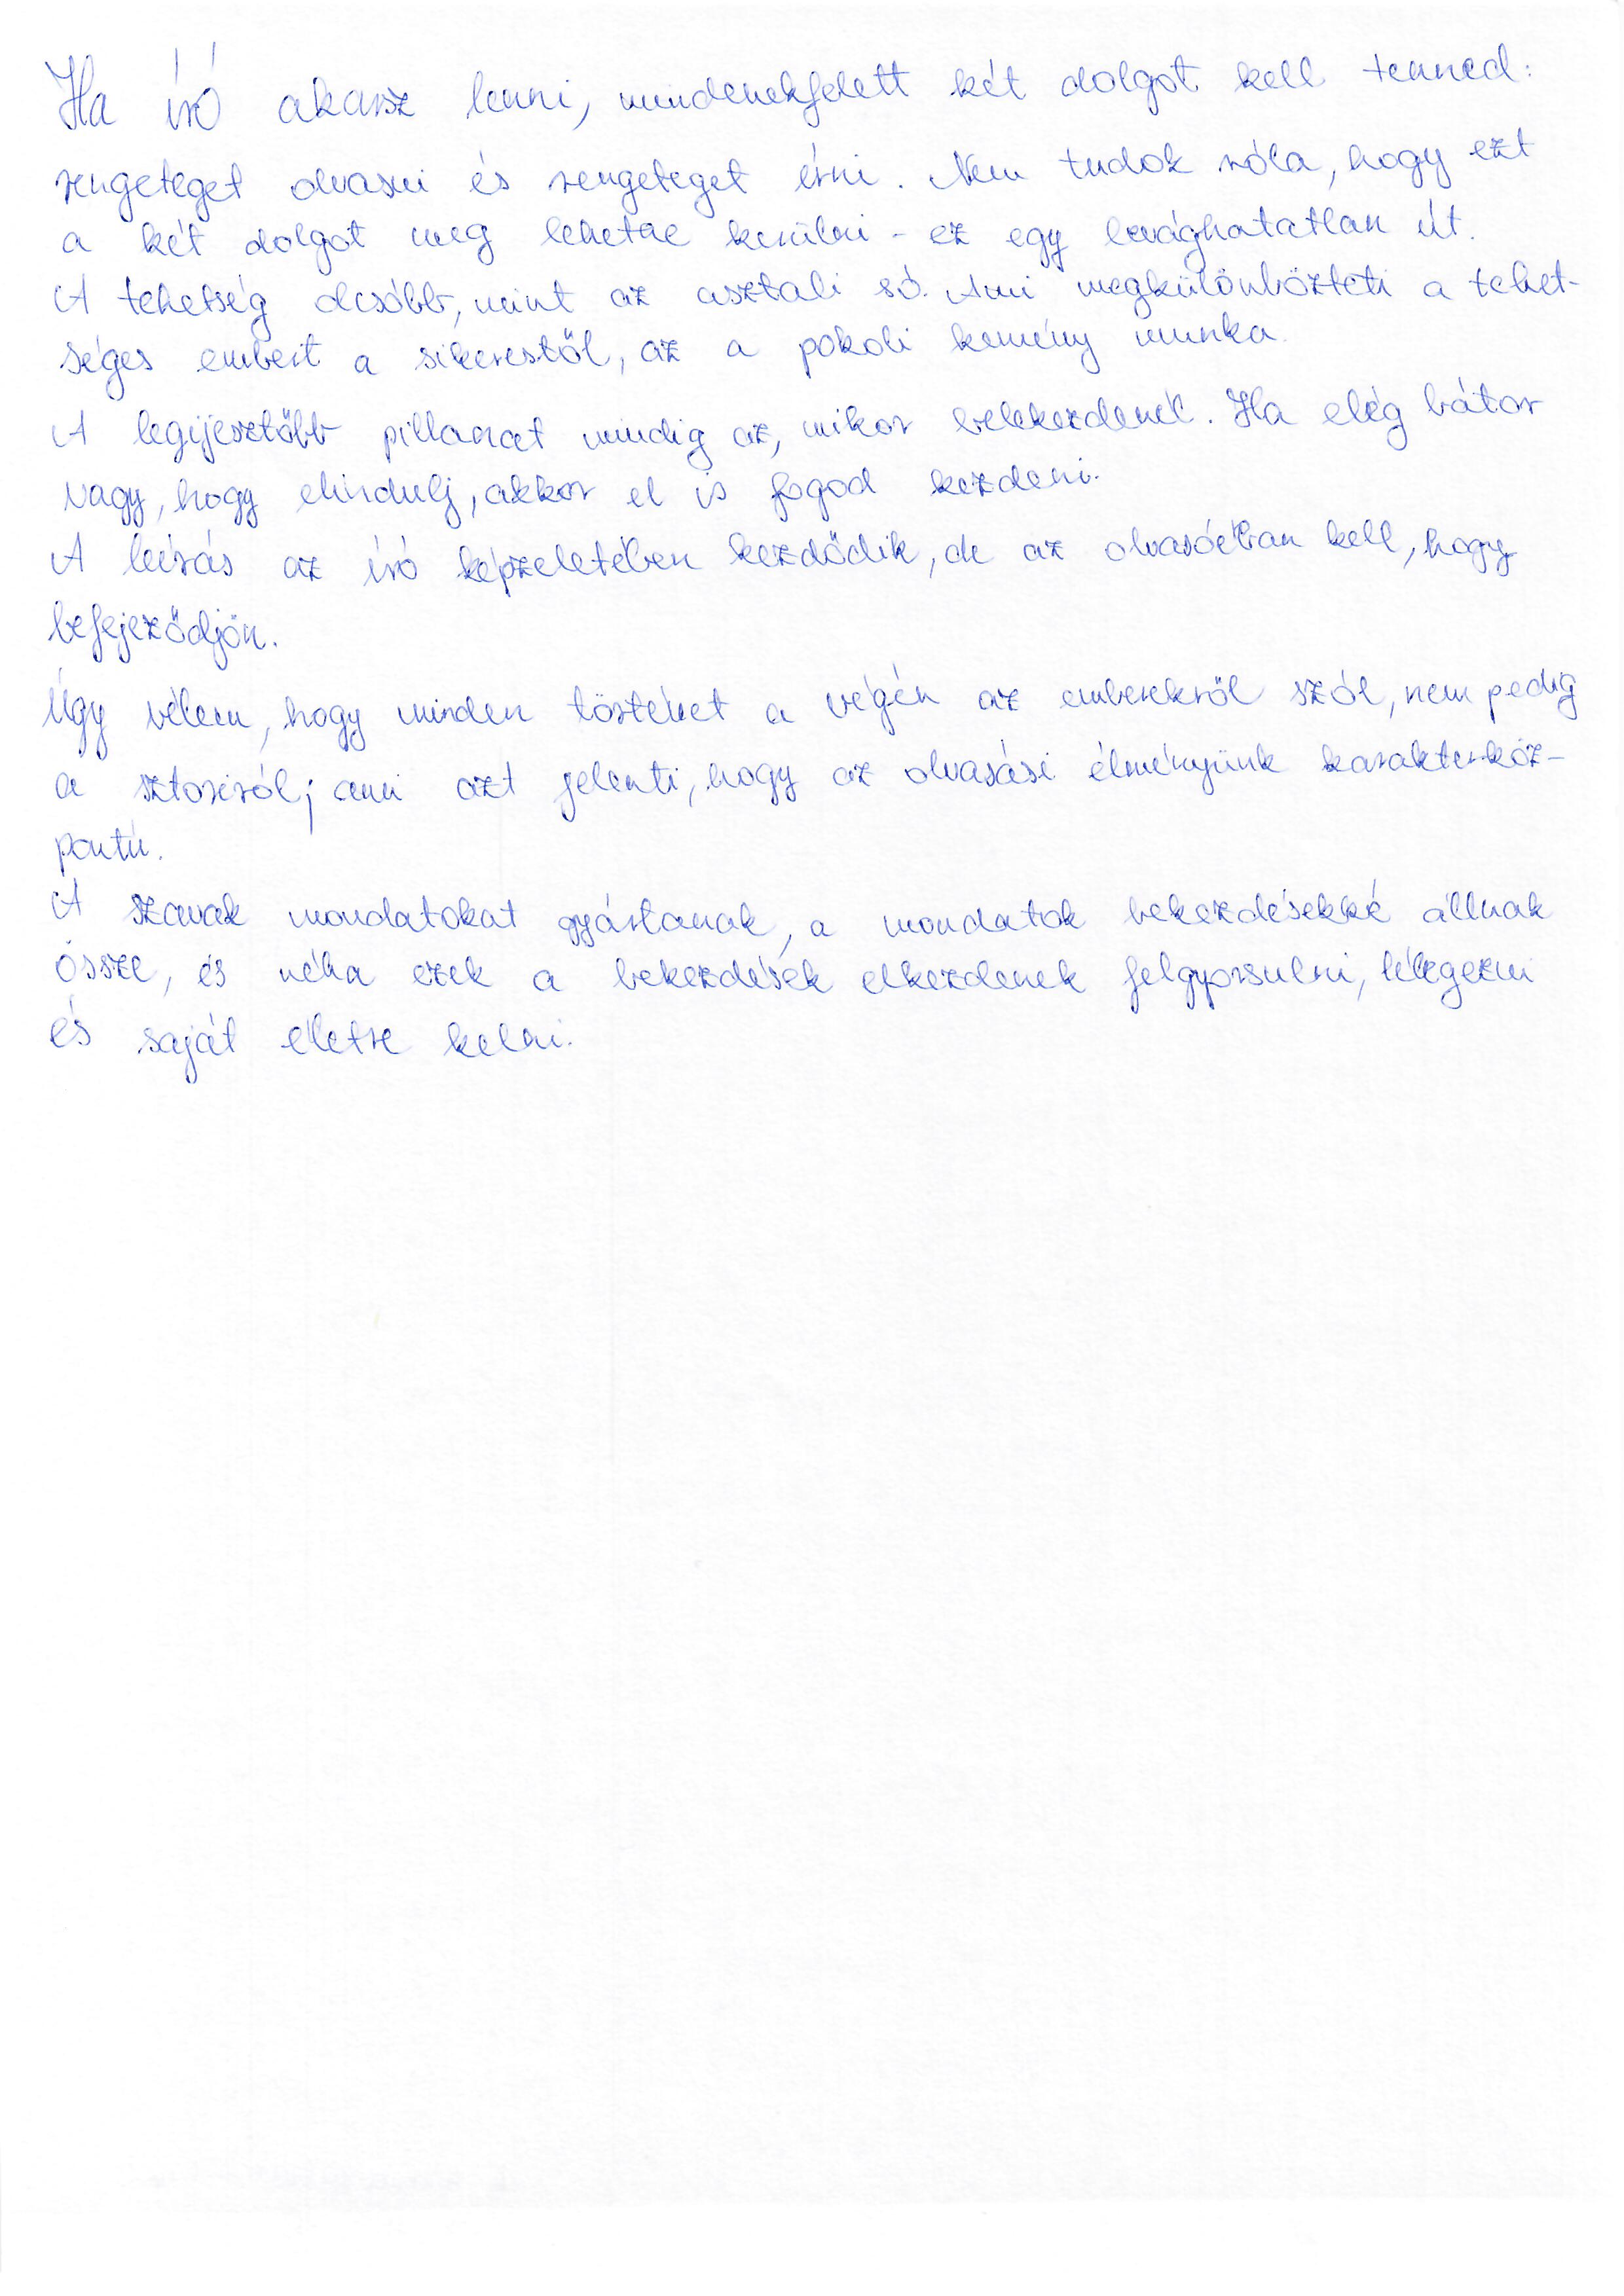 Ha író akarsz lenni, mindenekfelett két dolgot kell tenned:
rengeteget olvasni és rengeteget írni. Nem tudok róla, hogy ezt
a két dolgot meg lehetne kerülni - ez egy levághatatlan út.
A tehetség olcsóbb, mint az asztali só. Ami megkülönbözteti a tehet-
séges embert a sikerestől, az a pokoli kemény munka.
A legijesztőbb pillanat mindig az, mikor belekezdenél. Ha elég bátor
vagy, hogy elindulj, akkor el is fogod kezdeni.
A leírás az író képzeletében kezdődik, de az olvasóéban kell, hogy
befejeződjön.
Úgy vélem, hogy minden történet a végén az emberekről szól, nem pedig
a sztoriról; ami azt jelenti, hogy az olvasási élményünk karakterköz-
pontú.
A szavak mondatokat gyártanak, a mondatok bekezdésekké állnak
össze, és néha ezek a bekezdések elkezdenek felgyorsulni, lélegezni
és saját életre kelni.